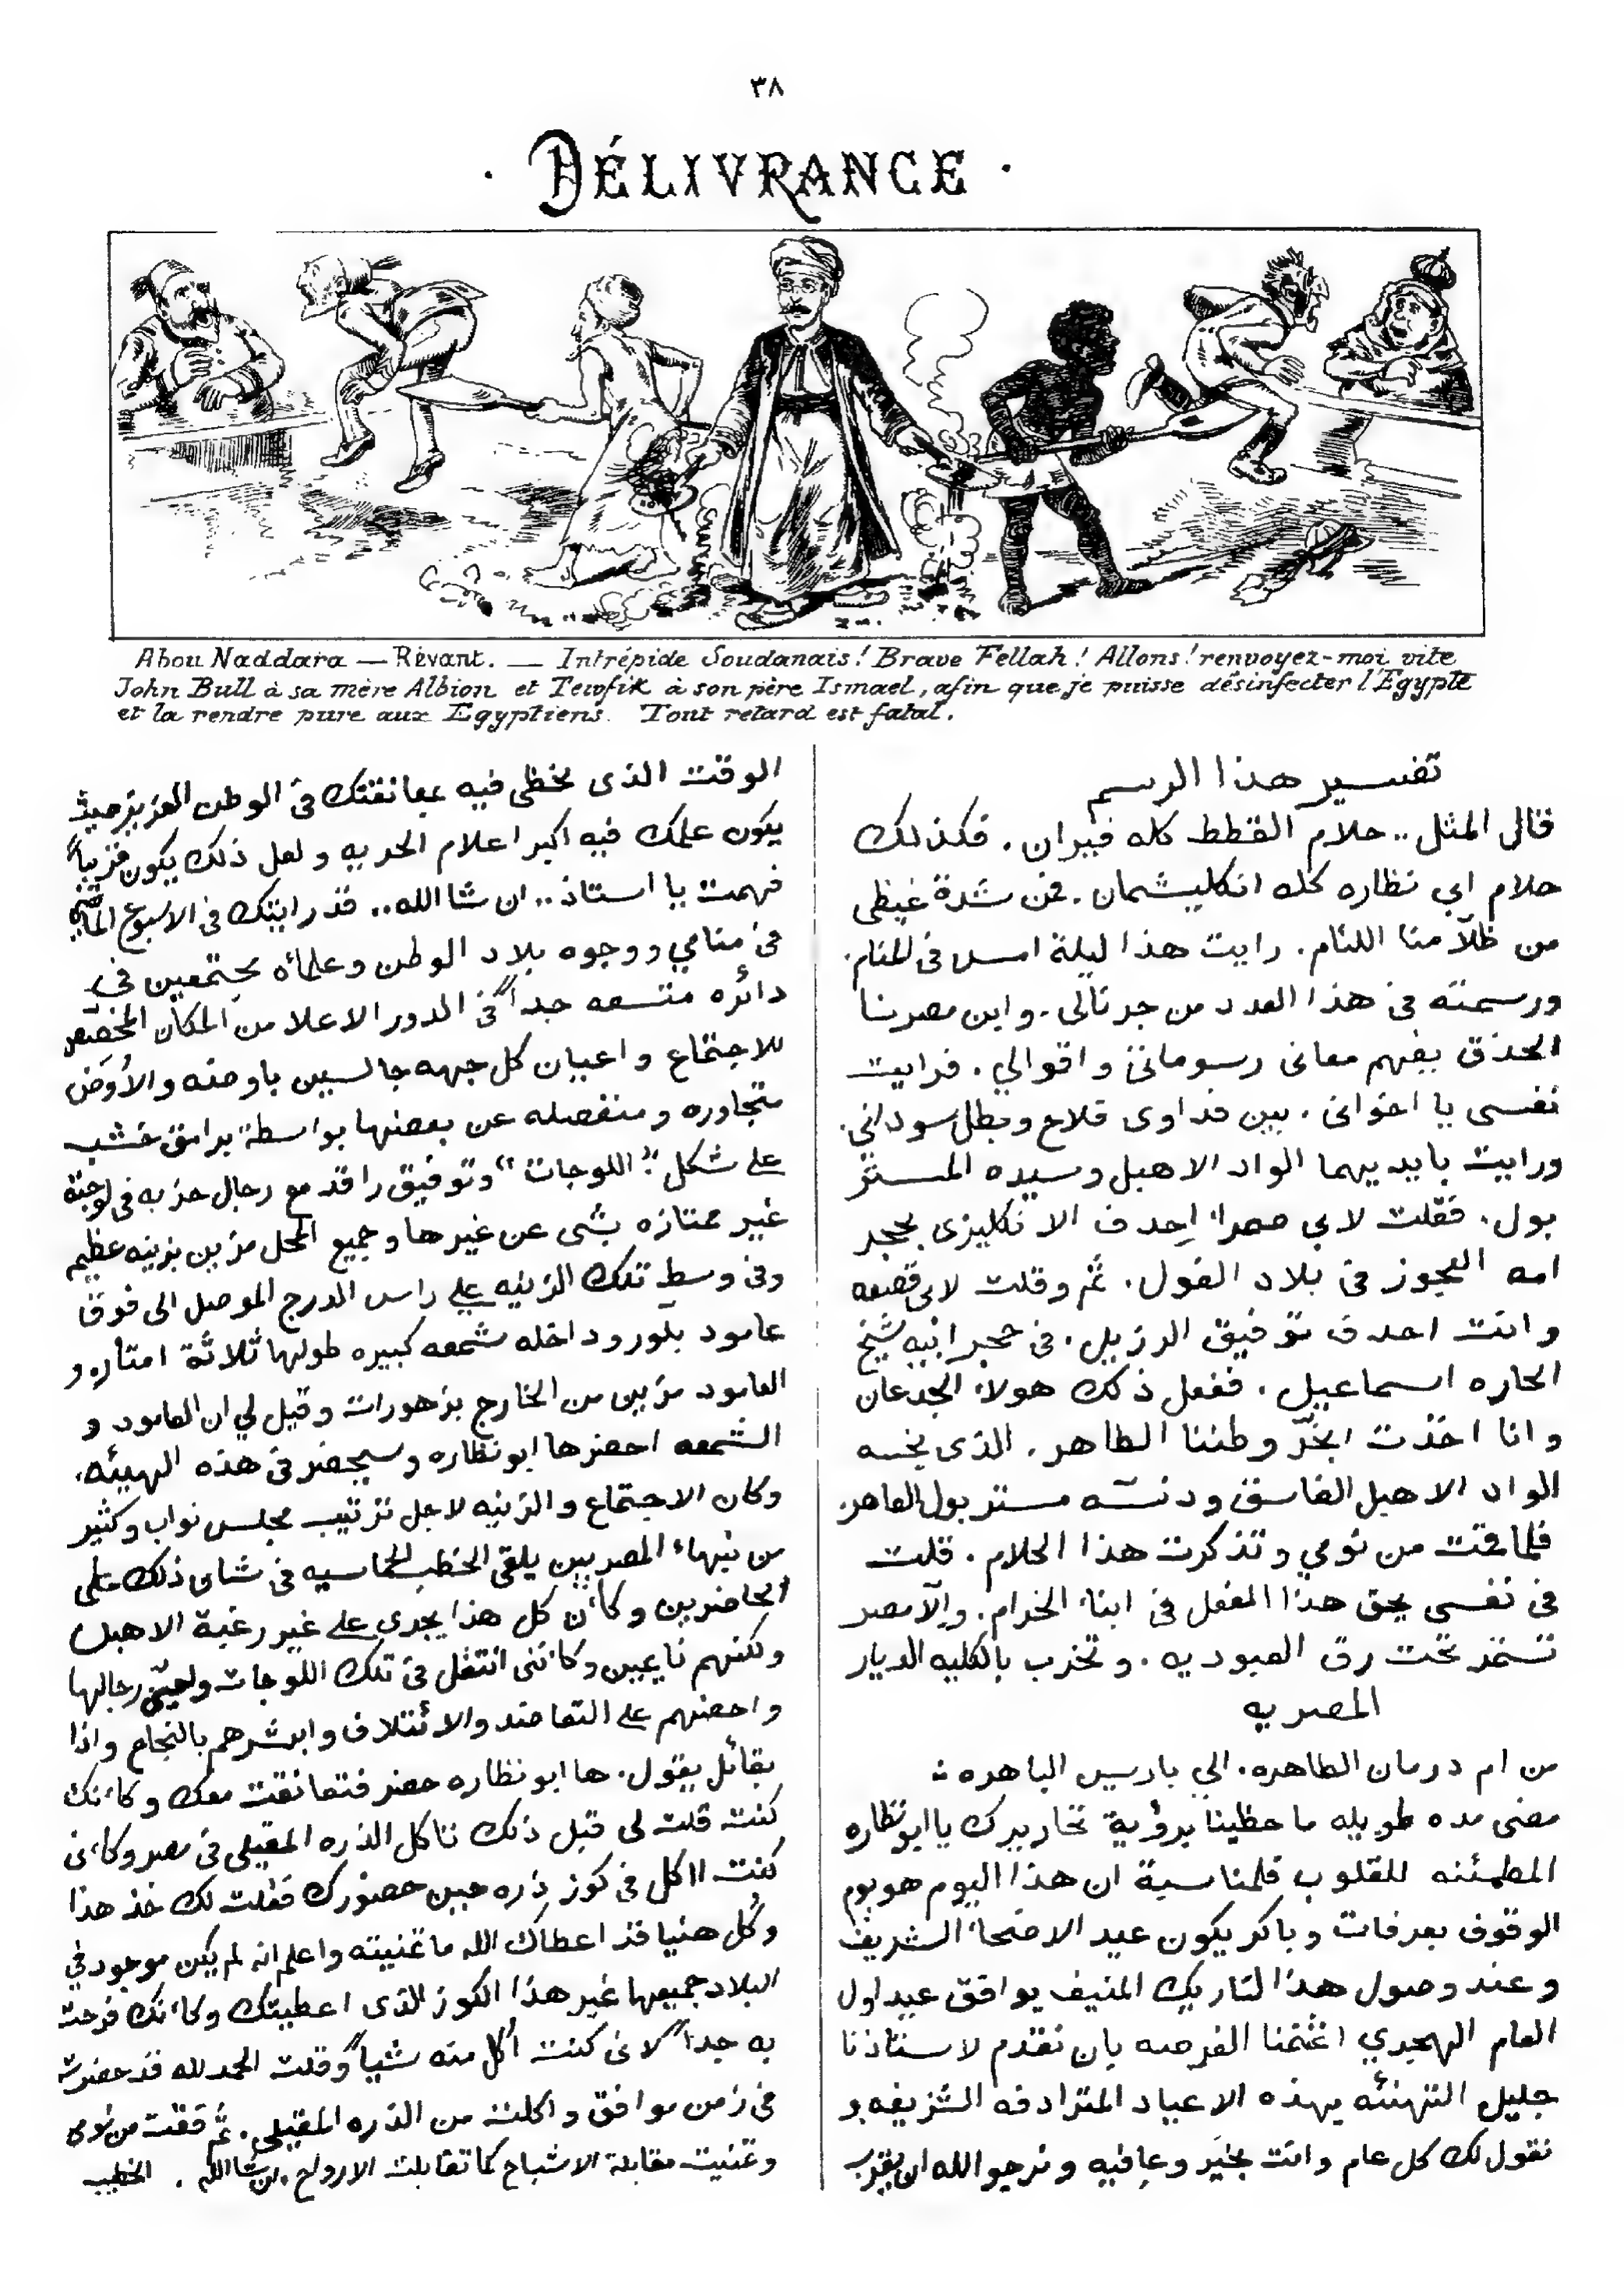 ٣٨
· DÉLIVRANCE ·
Abou Naddara — Rêvant. — Intrépide Soudanais! Brave Fellah! Allons! renvoyez-moi vite
John Bull à sa mère Albion et Tewfik à son père Ismael, afin que je puisse désinfecter l'Egypte
et la rendre pure aux Egyptiens. Tout retard est fatal.
تفسير هذا الرسم
قال المثل .. حلام القطط كله فيران . فكذلك
حلام ابي نظاره كله انكليشمان . فمن شدة غيظى
من ظلّامنا اللئام . رايت هذا ليلة امس فى المنام .
ورسمته فى هذا العدد من جرنالى . واين مصرنا
الحذق يفهم معانى رسوماتى واقوالي . فرايت
نفسى يا اخوانى . بين فداوى فلاح وبطل سودانى .
ورايت بايديهما الواد الاهبل وسيده المستر
بول . فقلت لابي صمرا احدف الانكليزى بحجر
امه العجوز فى بلاد الفول . ثم وقلت لابى قصعه
وانت احدف توفيق الرزيل . فى حجر ابيه شيخ
الحاره اسماعيل . ففعل ذلك هولاء الجدعان
وانا اخذت ابخّر وطننا الطاهر . الذى نجسه
الواد الاهبل الفاسق ودنسّه مستر بول العاهر .
فلما قمت من نومي وتذكرت هذا الحلام . قلت
فى نفسى يحق هذا المفعل فى ابناء الحرام . والّا مصر
تستمر تحت رق العبوديه . وتخرب بالكليه الديار
المصريه
من ام درمان الطاهره . الي باريس الباهره :
مضى مده طويله ما حظينا برؤية تحاريرك يا ابو نظاره
المطمئنه للقلوب فلمناسبة ان هذا اليوم هو يوم
الوقوف بعرفات وباكر يكون عيد الاضحاء الشريف
وعند وصول هذا لتاريك المنيف يوافق عيد اول
العام الهجري اغتمنا الفرصه بان نقدم لاستاذنا
جليل التهنئه بهذه الاعياد المترادفه الشريفه و
نقول لك كل عام وانت بخير وعافيه ونرجو الله ان يقرب
الوقت الذى نحظى فيه بمعانقتك فى الوطن العزيز حيث
يكون علمك فيه اكبر اعلام الحريه ولعل ذلك يكون قريباً
فهمت يا استاذ .. ان شا الله .. قد رايتك فى الاسبوع الماضى
فى منامي ووجوه بلاد الوطن وعلمائه مجتمعين فى
دائره متسعه جداً فى الدور الاعلا من المكان المخصص
للاجتماع واعيان كل جهه جالسين باوضه والأوض
متجاوره ومنفصله عن بعضها بواسطة برامق خشب
على شكل " اللوجات " وتوفيق راقد مع رجال حزبه فى لوجة
غير ممتازه بشى عن غيرها وجميع المحل مزين بزينه عظيم
وفى وسط تلك الزينه على راس الدرج الموصل الى فوق
عامود بلور وداخله شمعه كبيره طولها ثلاثة امتار و
العامود مزين من الخارج بزهورات وقيل لي ان العامود و
الشمعه احضرها ابو نظاره وسيحضر فى هذه الهيئه .
وكان الاجتماع والزينه لاجل ترتيب مجلس نواب وكثير
من نبهاء المصريين يلقى الخطب الحماسيه فى شان ذلك على
الحاضرين وكان كل هذا يجرى على غير رغبة الاهبل
ولكنهم نايمين وكاننى انتقل فى تلك اللوجات رجالها
واحضهم على التعاضد والائتلاف وابشرهم بالنجاح واذا
بقائل يقول . ها ابو نظاره حضر فتعانقت معك وكانك
كنت قلت لى قبل ذلك ناكل الذره المقيلى فى مصر وكانى
كنت ااكل فى كوز ذره حين حضورك فقلت لك خذ هذا
وكُل هنيا قد اعطاك الله ما تمنيته واعلم انه لم يكن موجود في
البلاد جميعها غير هذا الكوز الذى اعطيتك وكانك فرحت
به جداً لانى كنت اكل منه شياً وقلت الحمد لله قد حضرت
فى زمن موافق واكلت من الذره المقيلى . ثم فقت من نومى
وتمنيت مقابلة الاشباح كما تقابلت الارواح ان شا الله . الخطيب